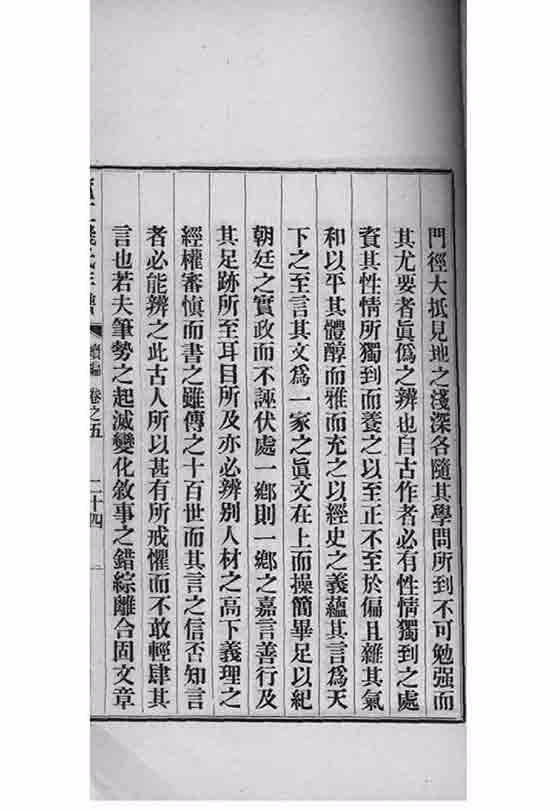 門徑大抵見地之淺深各隨其學問所到不可勉强而
其尤要者眞僞之辨也自古作者必有性情獨到之處
資其性情所獨到而養之以至正不至於偏且雜其氣
和以平其體醇而雅而充之以經史之義蘊其言爲天
下之至言其文爲一家之眞文在上而操簡畢足以紀
朝廷之實政而不誣伏處一鄉則一鄉之嘉言善行及
其足跡所至耳目所及亦必辨别人材之高下義理之
經權審慎而書之雖傳之十百世而其言之信否知言
者必能辨之此古人所以甚有所戒懼而不敢輕肆其
言也若夫筆勢之起滅變化敘事之錯綜離合固文章
續編 卷之五 二十四